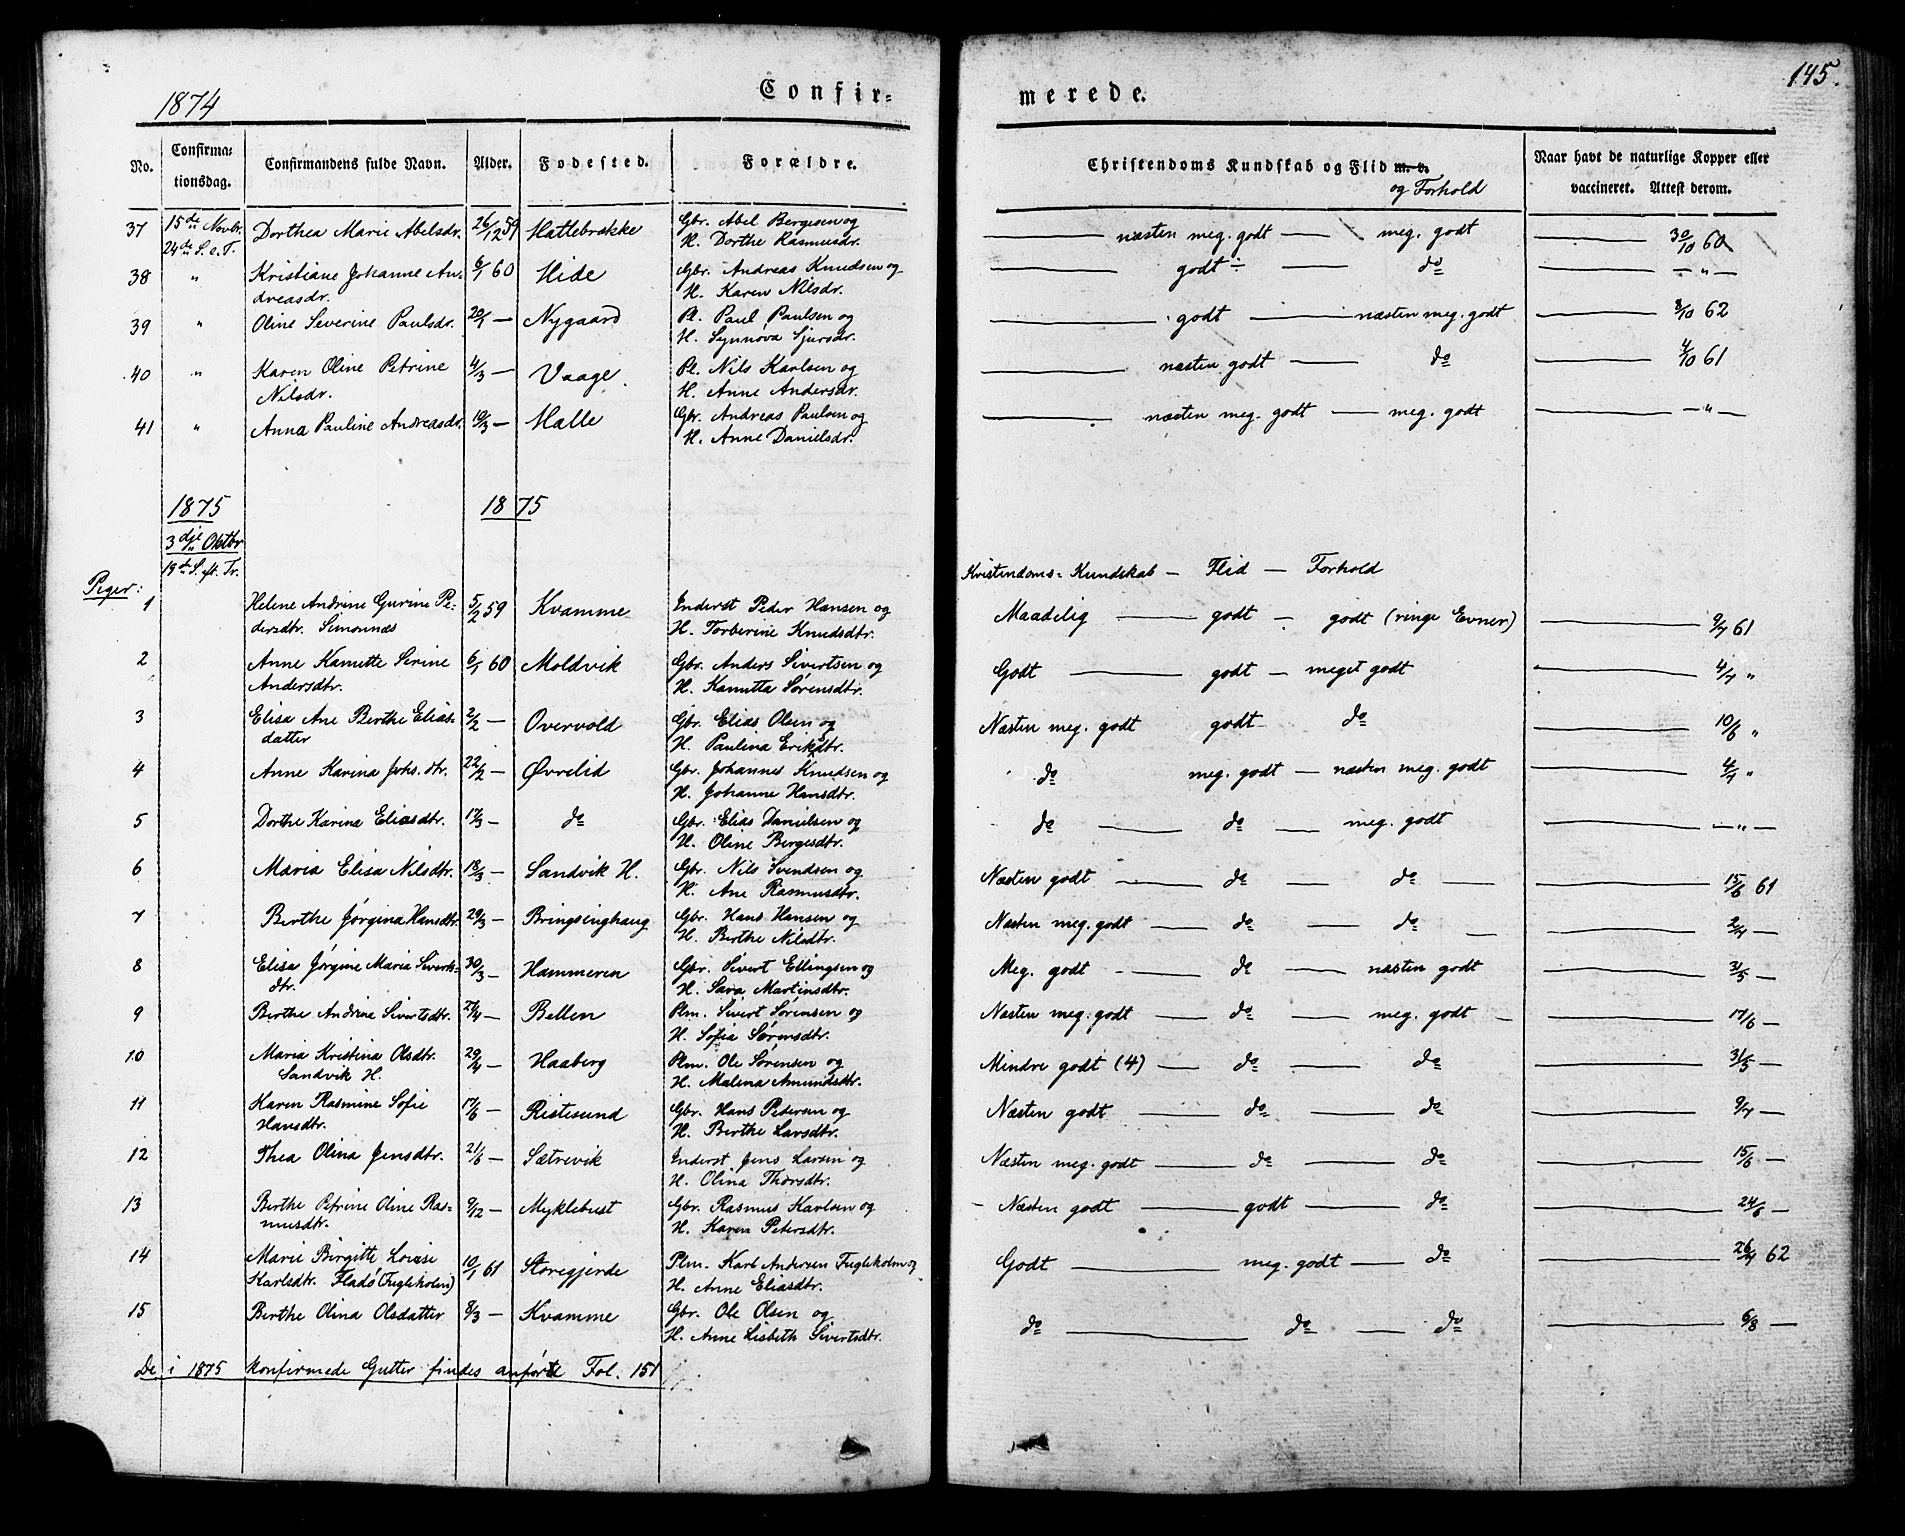 1874 Confir-
merede. 145.
No. Confirma-tionsdag. Confirmandens fulde Navn. Alder. Fødested. Forældre.
Christendoms Kundskab og Flid m. v. og Forhold
Naar havt de naturlige Kopper eller vaccineret. Attest derom.
37 15de Novbr. Dorthea Marie Abelsdr. 26/12 59 Hattebrække Gbr. Abel Bergesen og — næsten meg. godt — meg. godt — 30/10 60
24de S. e. T. H. Dorthe Rasmusdr.
38 " Kristiane Johanne An- 6/1 60 Hide Gbr. Andreas Knudsen og — godt ÷ — do — — " —
dreasdr. H. Karen Nilsdr.
39 " Oline Severine Paulsdr. 20/1 — Nygaard Pl. Paul Paulsen og — godt — næsten meg. godt — 8/10 62
H. Synnöva Sjursdr.
40 " Karen Oline Petrine 4/3 — Vaage Pl. Nils Karlsen og — næsten godt — do — 4/10 61
Nilsdr. H. Anne Andersdr.
41 " Anna Pauline Andreasdr. 19/3 — Halle Gbr. Andreas Paulsen og — næsten meg. godt — meg. godt — — " —
H. Anne Danielsdr.
1875 1875
3dje Oktbr
19de S. eft. Tr. Kristendoms-Kundskab — Flid — Forhold
Piger:
1 Helene Andrine Gurine Pe- 5/2 59 Kvamme Inderst Peder Hansen og Maadelig — godt — godt (ringe Evner) — 9/7 61
dersdtr. Simonnæs H. Torberine Knudsdtr.
2 Anne Kanutte Serine 6/1 60 Moldvik Gbr. Anders Sivertsen og Godt — godt — meget godt — 4/7 "
Andersdtr. H. Kanutta Sørensdtr.
3 Elisa Ane Berthe Elias- 2/2 — Overvold Gbr. Elias Olsen og Næsten meg. godt godt do — 10/6 "
datter H. Paulina Eriksdtr.
4 Anne Karina Johs. dtr. 22/2 — Øvrelid Gbr. Johannes Knudsen og do meg. godt — næsten meg. godt — 4/7 "
H. Johanne Hansdtr.
5 Dorthe Karina Eliasdtr. 17/3 — do Gbr. Elias Danielsen og do — do — meg. godt — — " —
H. Oline Bergesdtr.
6 Maria Elisa Nilsdtr. 18/3 — Sandvik H. Gbr. Nils Svendsen og Næsten godt — do — do — — 15/6 61
H. Ane Rasmusdtr.
7 Berthe Jørgina Hansdtr. 29/3 — Bringsinghaug Gbr. Hans Hansen og Næsten meg. godt — do — do — — 2/7 —
H. Berthe Nilsdtr.
8 Elisa Jørgine Maria Siverts- 30/3 — Hammeren Gbr. Sivert Ellingsen og Meg. godt — do — næsten godt — 31/5 —
dtr. H. Sara Martinsdtr.
9 Berthe Andrine Sivertsdtr. 27/4 — Bellen Plm. Sivert Sørensen og Næsten meg. godt — do — meg. godt — — 17/6 —
H. Sofia Sørensdtr.
10 Maria Kristina Olsdtr. 29/4 — Haaberg Plm. Ole Sørensen og Mindre godt (4) — do — do — 31/5 —
Sandvik H. H. Malena Amundsdtr.
11 Karen Rasmine Sofie 17/6 — Ristesund Gbr. Hans Pedersen og Næsten godt — do — do — 9/7 —
Hansdtr. H. Berthe Larsdtr.
12 Thea Olina Jensdtr. 21/6 — Sætrevik Inderst Jens Larsen og Næsten meg. godt — do — do — 15/6 —
H. Olina Thorsdtr.
13 Berthe Petrine Oline Ras- 9/12 — Myklebust Gbr. Rasmus Karlsen og — Næsten godt — godt — do — 24/6 —
musdtr. H. Karen Petersdtr.
14 Marie Birgitte Lovise 10/1 61 Storegjerde Plm. Karl Andersen Fugleholm og Godt — meg. godt — do — 26/7 62
Karlsdtr. Fladö (Fugleholm) H. Anne Eliasdtr.
15 Berthe Olina Olsdatter 8/3 — Kvamme Gbr. Ole Olsen og do — do — do — 6/8 —
H. Anne Lisbeth Sivertsdtr.
De i 1875 konfirmede Gutter findes anførte Fol. 151